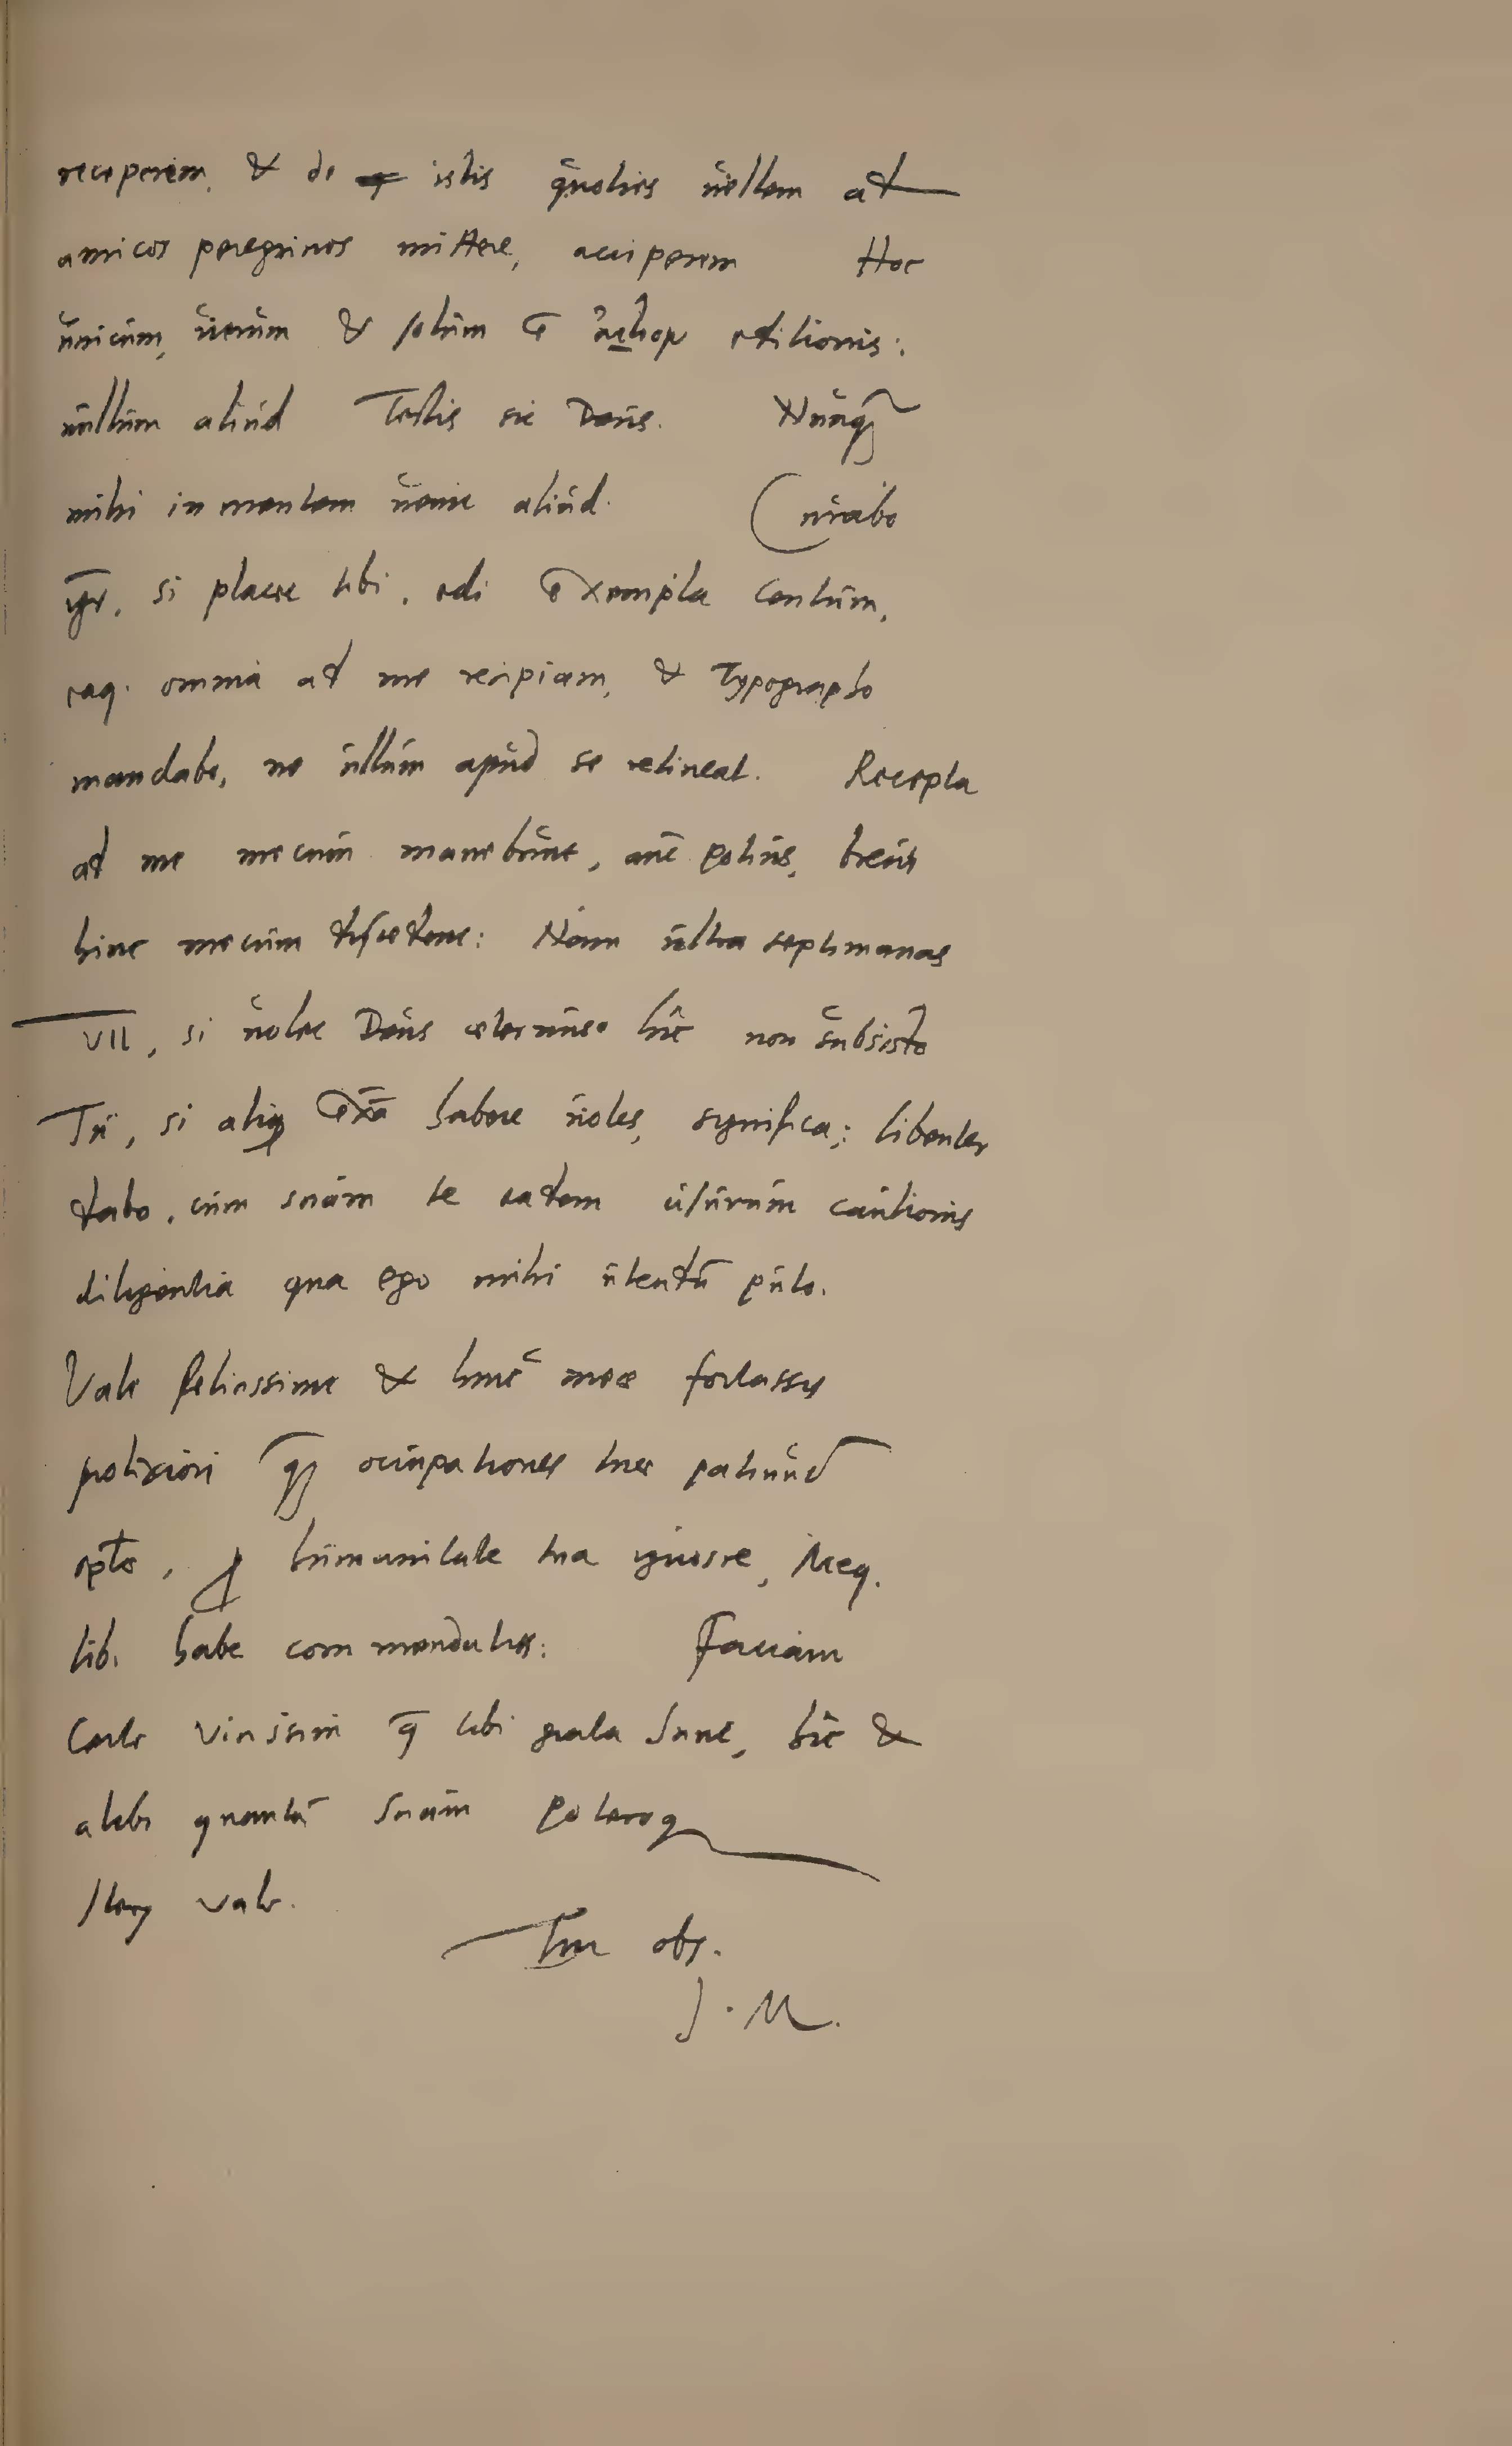 receperem, & de istis quoties vellem ad
amicos peregrinos mittere, acciperem Hoc
unicum, verum & solum editionis:
nullum aliud Testis sit Deus. Nunq̃
mihi in mentem venit aliud. Curabo
igr̄, si placet tibi, edi Exempla centum,
eaq. omnia ad me recipiam, & Typographo
mandabo, ne ullum apud se retineat. Recepta
ad me mecum manebunt, aut potius, brevi
hinc mecum discedent: Nam ultra septimanas
VII, si volet Deus æternus, hic non subsisto
Tu, si aliq Ex̄a habere voles, significa; libenter
dabo, cum sciam te eadem usurum cautionis
diligentia qua ego mihi utendū puto.
Vale felicissime & hinc meæ fortassis
prolixiori q̃ occupationes tuæ patiunt̃
ep̄to, ꝑ humanitate tua ignosce, Meq.
tib. habe commendatiss: Faciam
Carle q̄ tibi grata sunt, hic &
alibi quantū sciam poteroq
Iterq vale.
Tuus obs.
J. M.